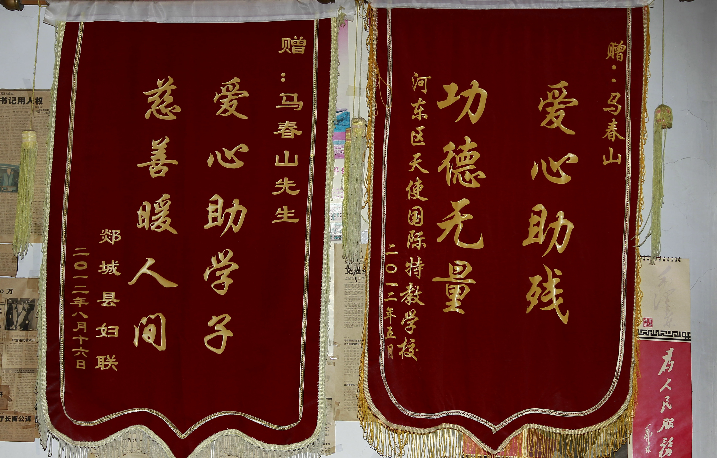 赠：马春山先生
爱心助学子
慈善暖人间
郯城县妇联
二〇一二年八月十六日
赠：马春山
爱心助残
功德无量
河东区天使国际特教学校
二〇一二年五月
为人民服务
书记用人权